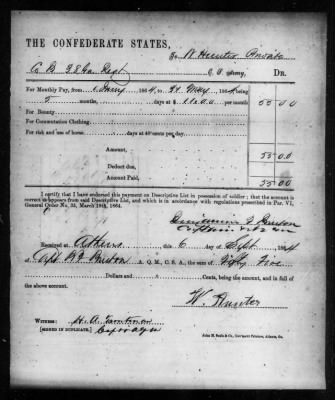 THE CONFEDERATE STATES,
To W Hunter Private
Co B 38 Ga Regt C. S. Army, DR.
For Monthly Pay, from 1864, to 31 May 1864, being
5 months, days at $ 11.00 per month 55 00
For Bounty
For Commutation Clothing,
For risk and use of horse days at 40 cents per day.
Amount, 55 00
Deduct due,
Amount Paid, 55 00
I certify that I have endorsed this payment on Descriptive List in possession of soldier; that the account
correct as appears from said Descriptive List, and which is in accordance with regulations prescribed in Par. VI,
General Order No. 35, March 28th, 1864.
Received at Athens this 6 day of Sept 1864
of Capt A. Q. M., C. S. A., the sum of Fifty Five
Dollars and Cents, being the amount, and in full of
the above account.
W. Hunter
WITNESS:
[SIGNED IN DUPLICATE.]